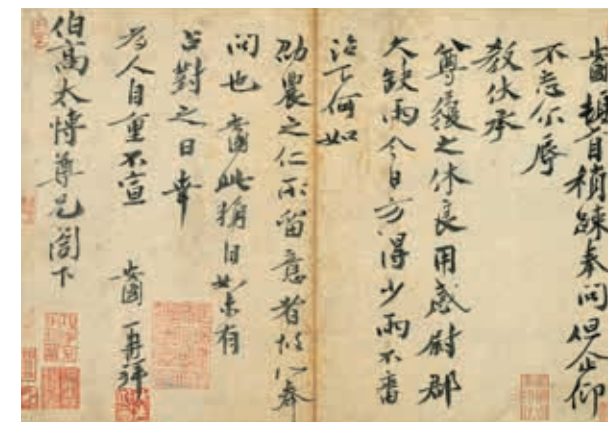 頓首稍踈奉問但企仰
不忘尒辱
教伏承
尊履之休良用感慰郡
大缺雨今日方得少雨不審
治下何如
勸農之仁所留意者故以奉
問也 此獨自如未有
占對之日幸
為人自重不宣 再拜
伯高太博尊兄閣下